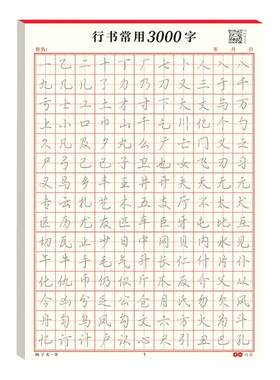 行书常用3000字
姓名: 年 月 日
一乙二十丁厂七卜人入八
九几儿了力乃刀又三于干
亏士工土才寸下大丈与万
上小口巾山千乞川亿个勺
久凡及夕丸么广亡门义之
尸弓己已子卫也女飞刃习
叉马乡丰王井开夫天无元
专云扎艺木五支厅不太犬
区历尤友匹车巨牙屯比互
切瓦止少日中冈贝内水见
午牛手毛气升长仁什片仆
化仇币仍仅斤爪反介父从
今凶分乏公仓月氏勿欠风
丹匀乌凤勾文六方火为斗
忆订计户认心尺引丑巴孔
1